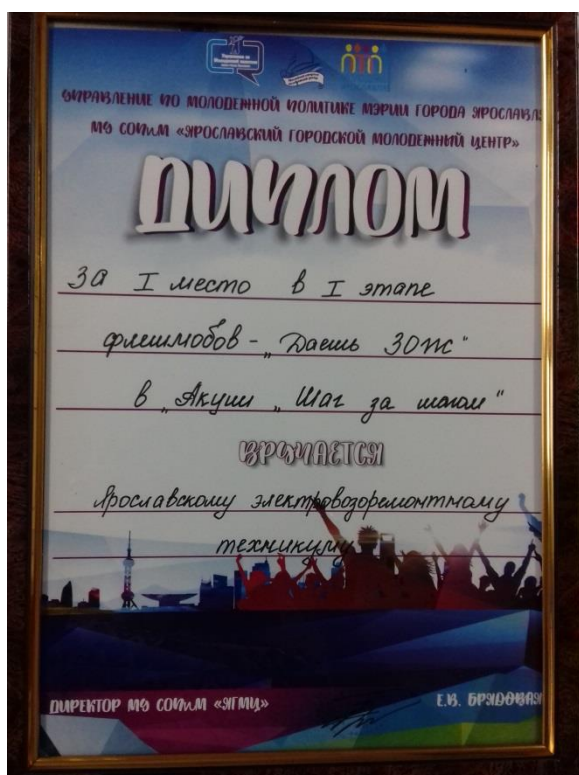 УПРАВЛЕНИЕ ПО МОЛОДЕЖНОЙ ПОЛИТИКЕ МЭРИИ ГОРОДА ЯРОСЛАВЛЯ
МУ СОПиМ «ЯРОСЛАВСКИЙ ГОРОДСКОЙ МОЛОДЕЖНЫЙ ЦЕНТР»
ДИПЛОМ
За I место в I этапе
флешмобов - „Даешь ЗОЖ"
в „Акции „Шаг за шагом"
ВРУЧАЕТСЯ
Ярославскому электровозоремонтному
техникуму
ДИРЕКТОР МУ СОПиМ «ЯГМЦ»
Е.В. БРЯДОВАЯ